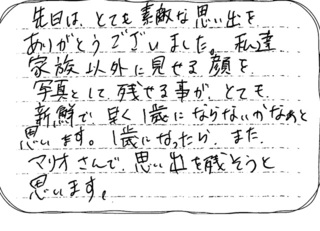 先日は、とても素敵な思い出を
ありがとうございました。私達
家族以外に見せる顔を
写真として残せる事が、とても
新鮮で早く1歳にならないかなぁと
思います。1歳になったら、また
マリオさんで思い出を残そうと
思います。